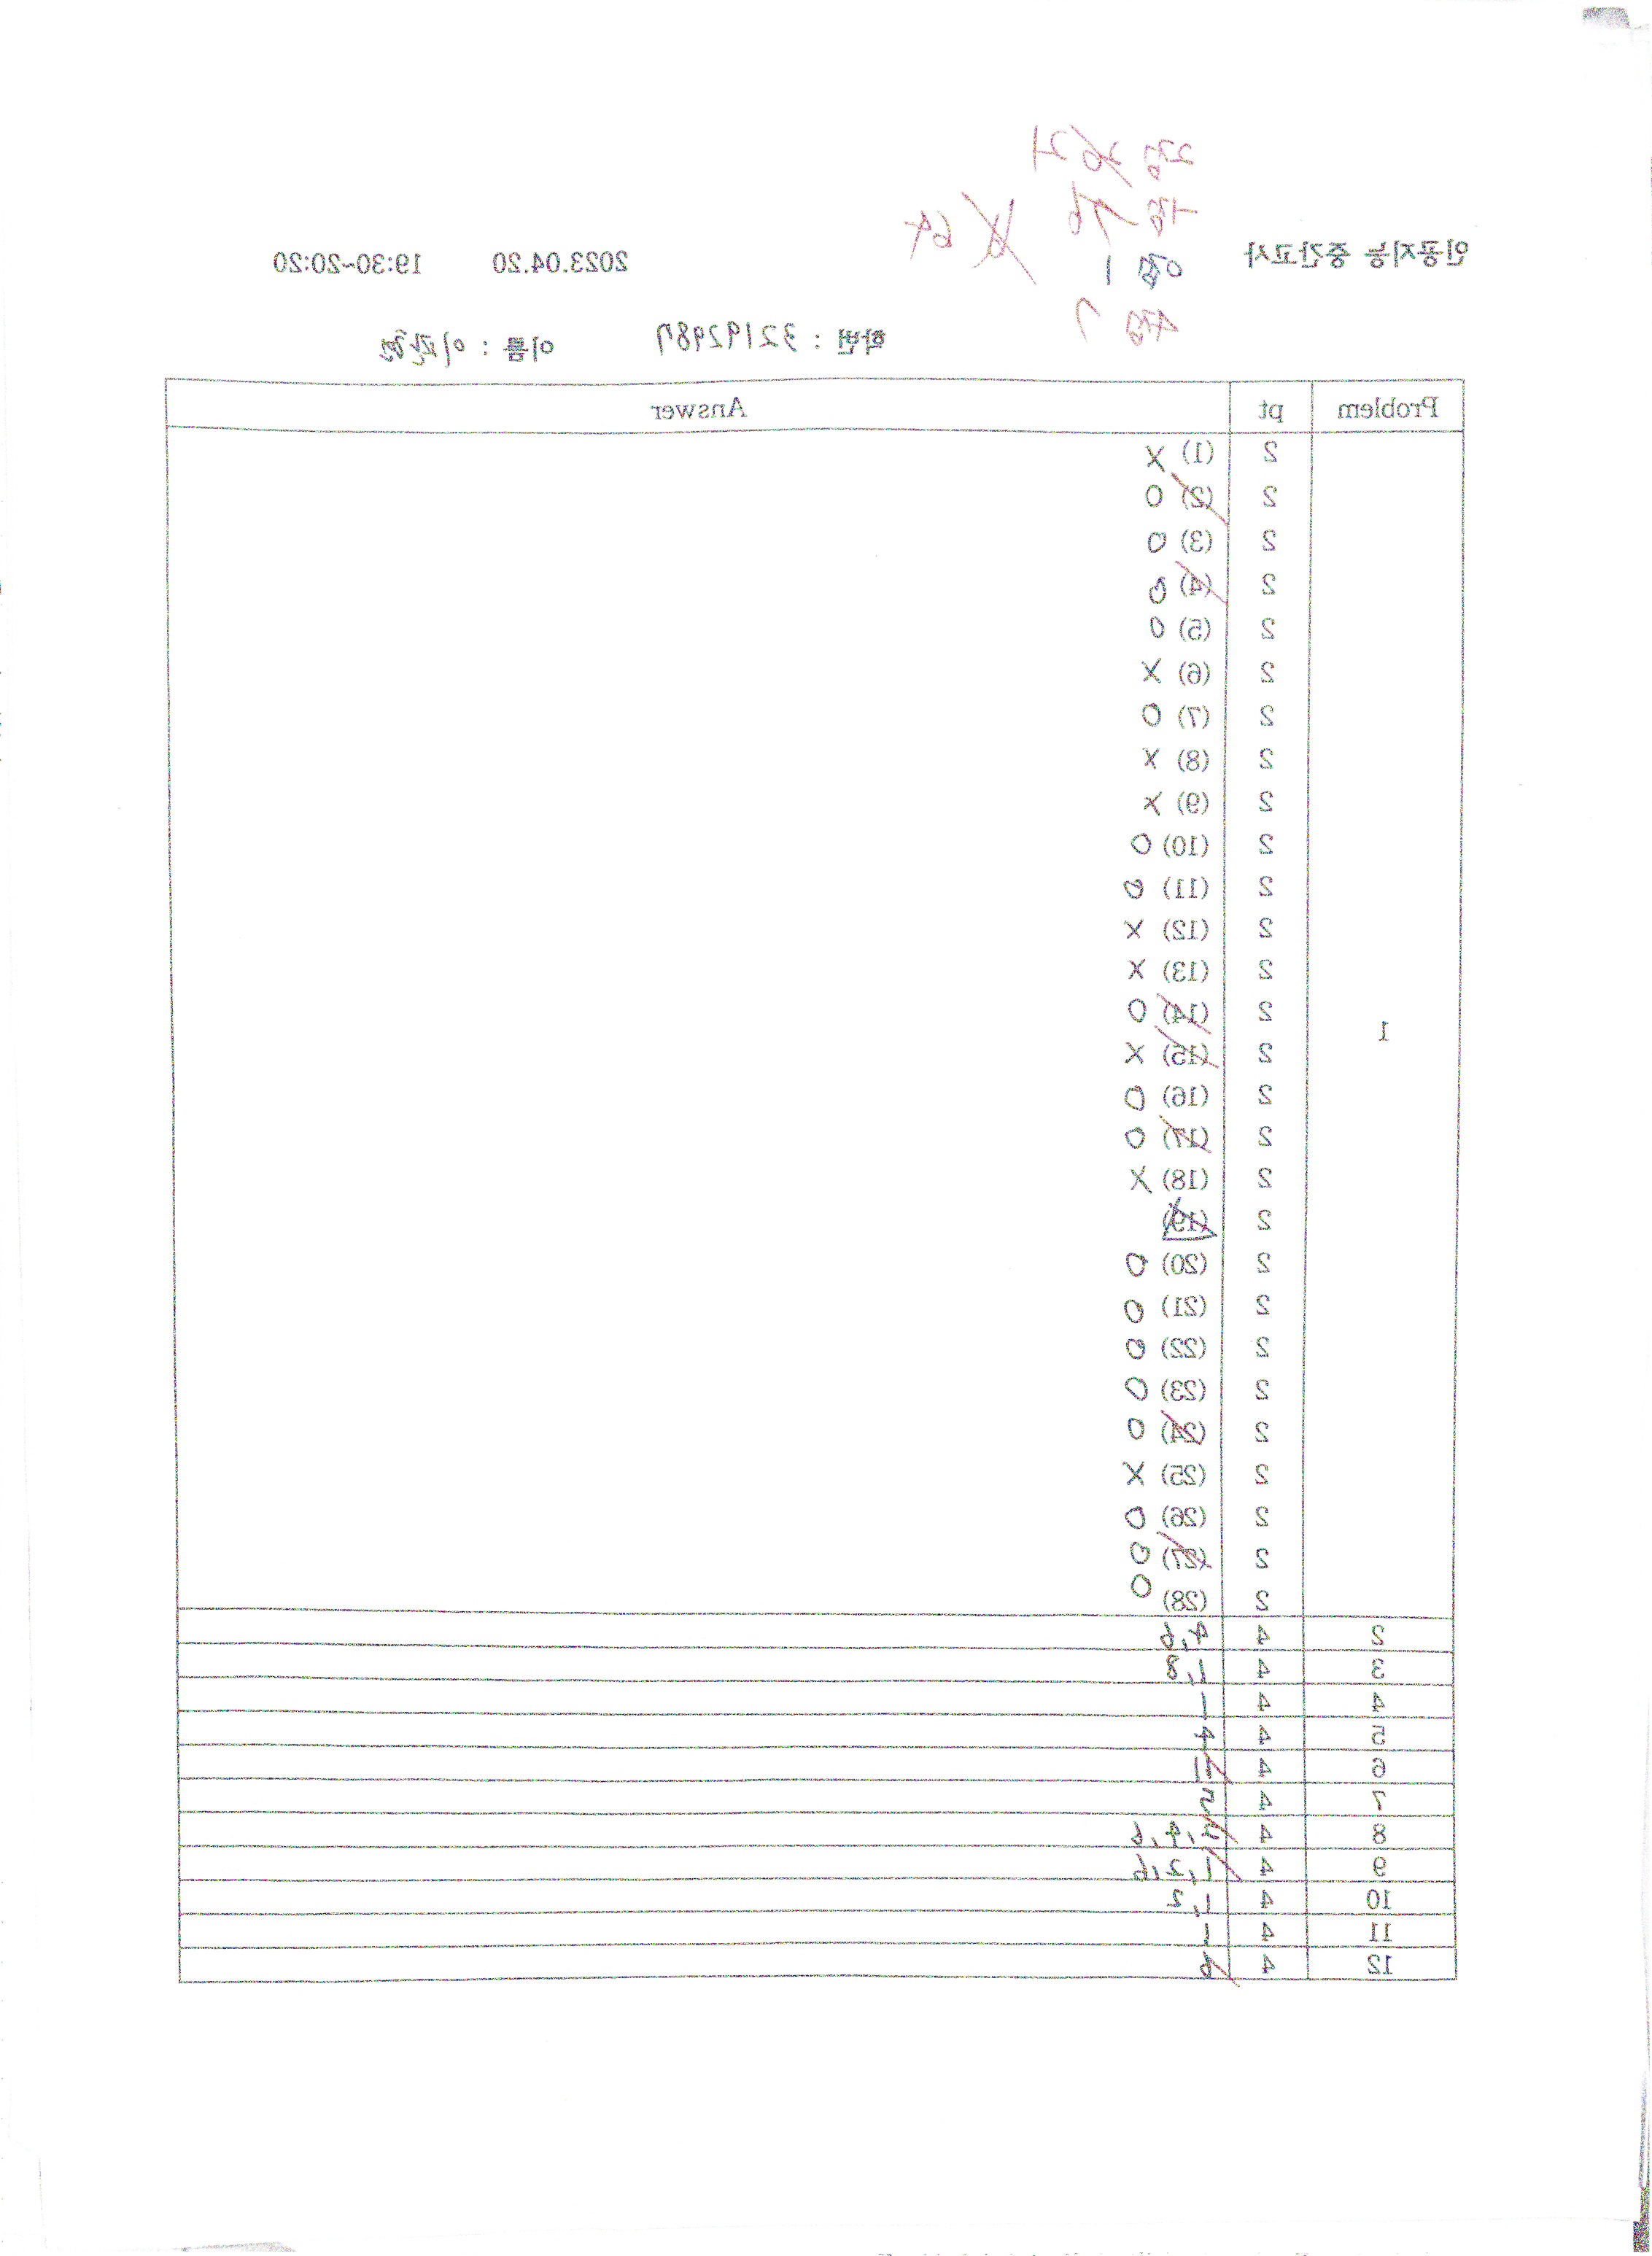 인공지능 중간고사 2023.04.20 19:30~20:20
2점
1점
0점 1
4점
64
학번 : 32192987 이름 : 이관현
Problem pt Answer
1
2 (1) X
2 (2) O
2 (3) O
2 (4) O
2 (5) O
2 (6) X
2 (7) O
2 (8) X
2 (9) X
2 (10) O
2 (11) O
2 (12) X
2 (13) X
2 (14) O
2 (15) X
2 (16) O
2 (17) O
2 (18) X
2 (19)
2 (20) O
2 (21) O
2 (22) O
2 (23) O
2 (24) O
2 (25) X
2 (26) O
2 (27) O
2 (28) O
2 4 4,6
3 4 1,8
4 4 1
5 4 4
6 4
7 4 5
8 4 2,4,6
9 4 1,2,6
10 4 1,2
11 4 1
12 4 6